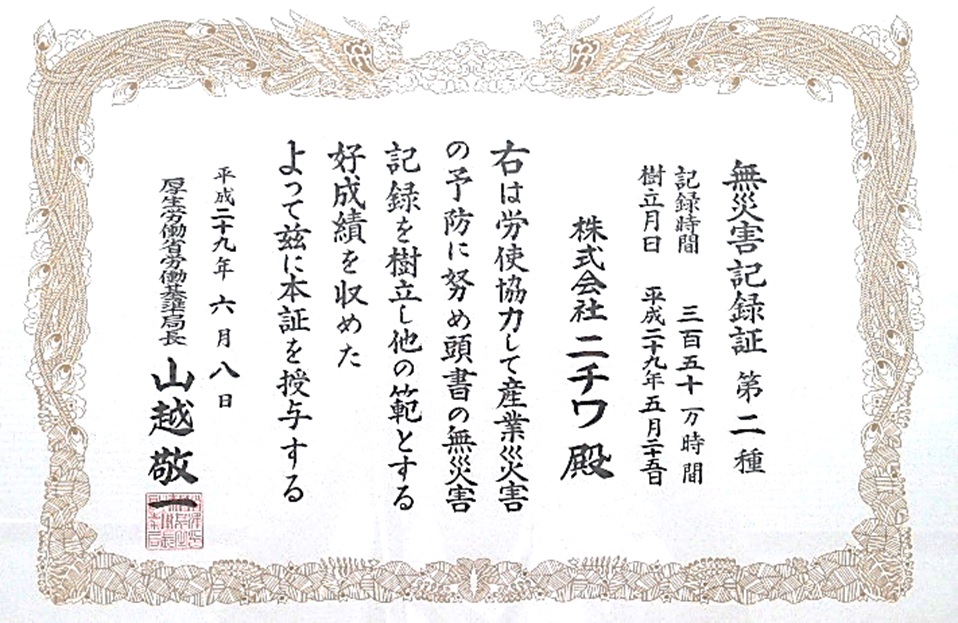 無災害記録証 第二種
記録時間 三百五十一万時間
樹立月日 平成二十九年五月二十五日
株式会社ニチワ殿
右は労使協力して産業災害
の予防に努め頭書の無災害
記録を樹立し他の範とする
好成績を収めた
よって玆に本証を授与する
平成二十九年六月八日
厚生労働省労働基準局長 山越敬一